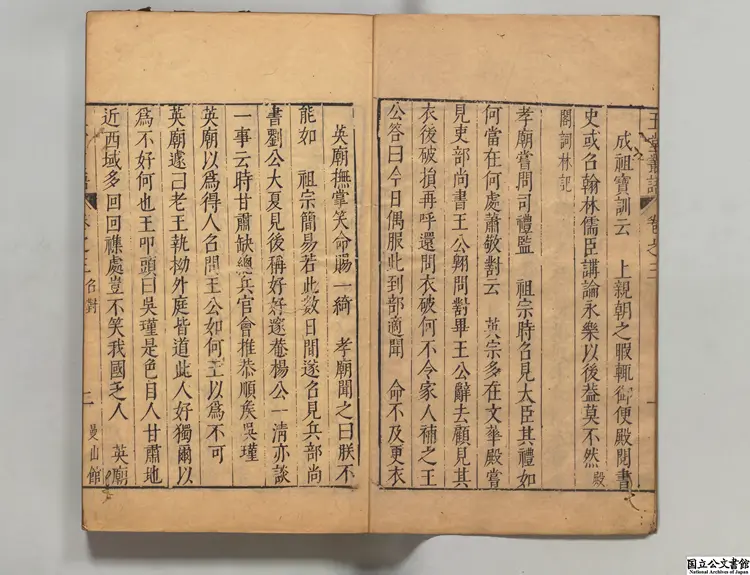 玉堂叢語 卷之三
成祖寶訓云　上親朝之暇輒御便殿閱書
史或召翰林儒臣講論永樂以後葢莫不然 殿
閣詞林記
孝廟嘗問司禮監　祖宗時召見大臣其禮如
何當在何處蕭敬對云　英宗多在文華殿嘗
見吏部尚書王公翱問對畢王公辭去顧見其
衣後破損再呼還問衣破何不令家人補之王
公答曰今日偶服此到部適聞　命不及更衣
英廟撫掌笑命賜一綺　孝廟聞之曰朕不
能如　祖宗簡易若此數日間遂召見兵部尚
書劉公大夏見後稱好好邃菴楊公一清亦談
一事云時甘肅缺總兵官會推恭順矦吳瑾
英廟以爲得人召問王公如何王以爲不可
英廟遽曰老王執拗外庭皆道此人好獨爾以
爲不好何也王叩頭曰吳瑾是色目人甘肅地
近西域多回回襍處豈不笑我國乏人　英廟
語 卷之三 召對 三 曼山館
国立公文書館
National Archives of Japan